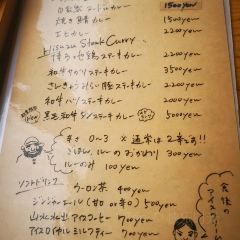 1500yen
焼き鯖カレー 1500yen
エビカレー 2200yen
Steak Curry
ステーキカレー 2200yen
和牛サガリステーキカレー 3500yen
ステーキカレー 2200yen
和牛ハツステーキカレー 2000yen
黒毛和牛タンステーキカレー 5000yen
辛さ 0~3 ※通常は2辛です!!
ごはん、ルーのおかわり 300yen
ルーのみ 100yen
ソフトドリンク
ウーロン茶 400yen
ジンジャーエール(甘 or 辛) 500yen
山水水出しアイスコーヒー 700yen
アイスロイヤルミルクティー 700yen
食後の
アイスクリーム